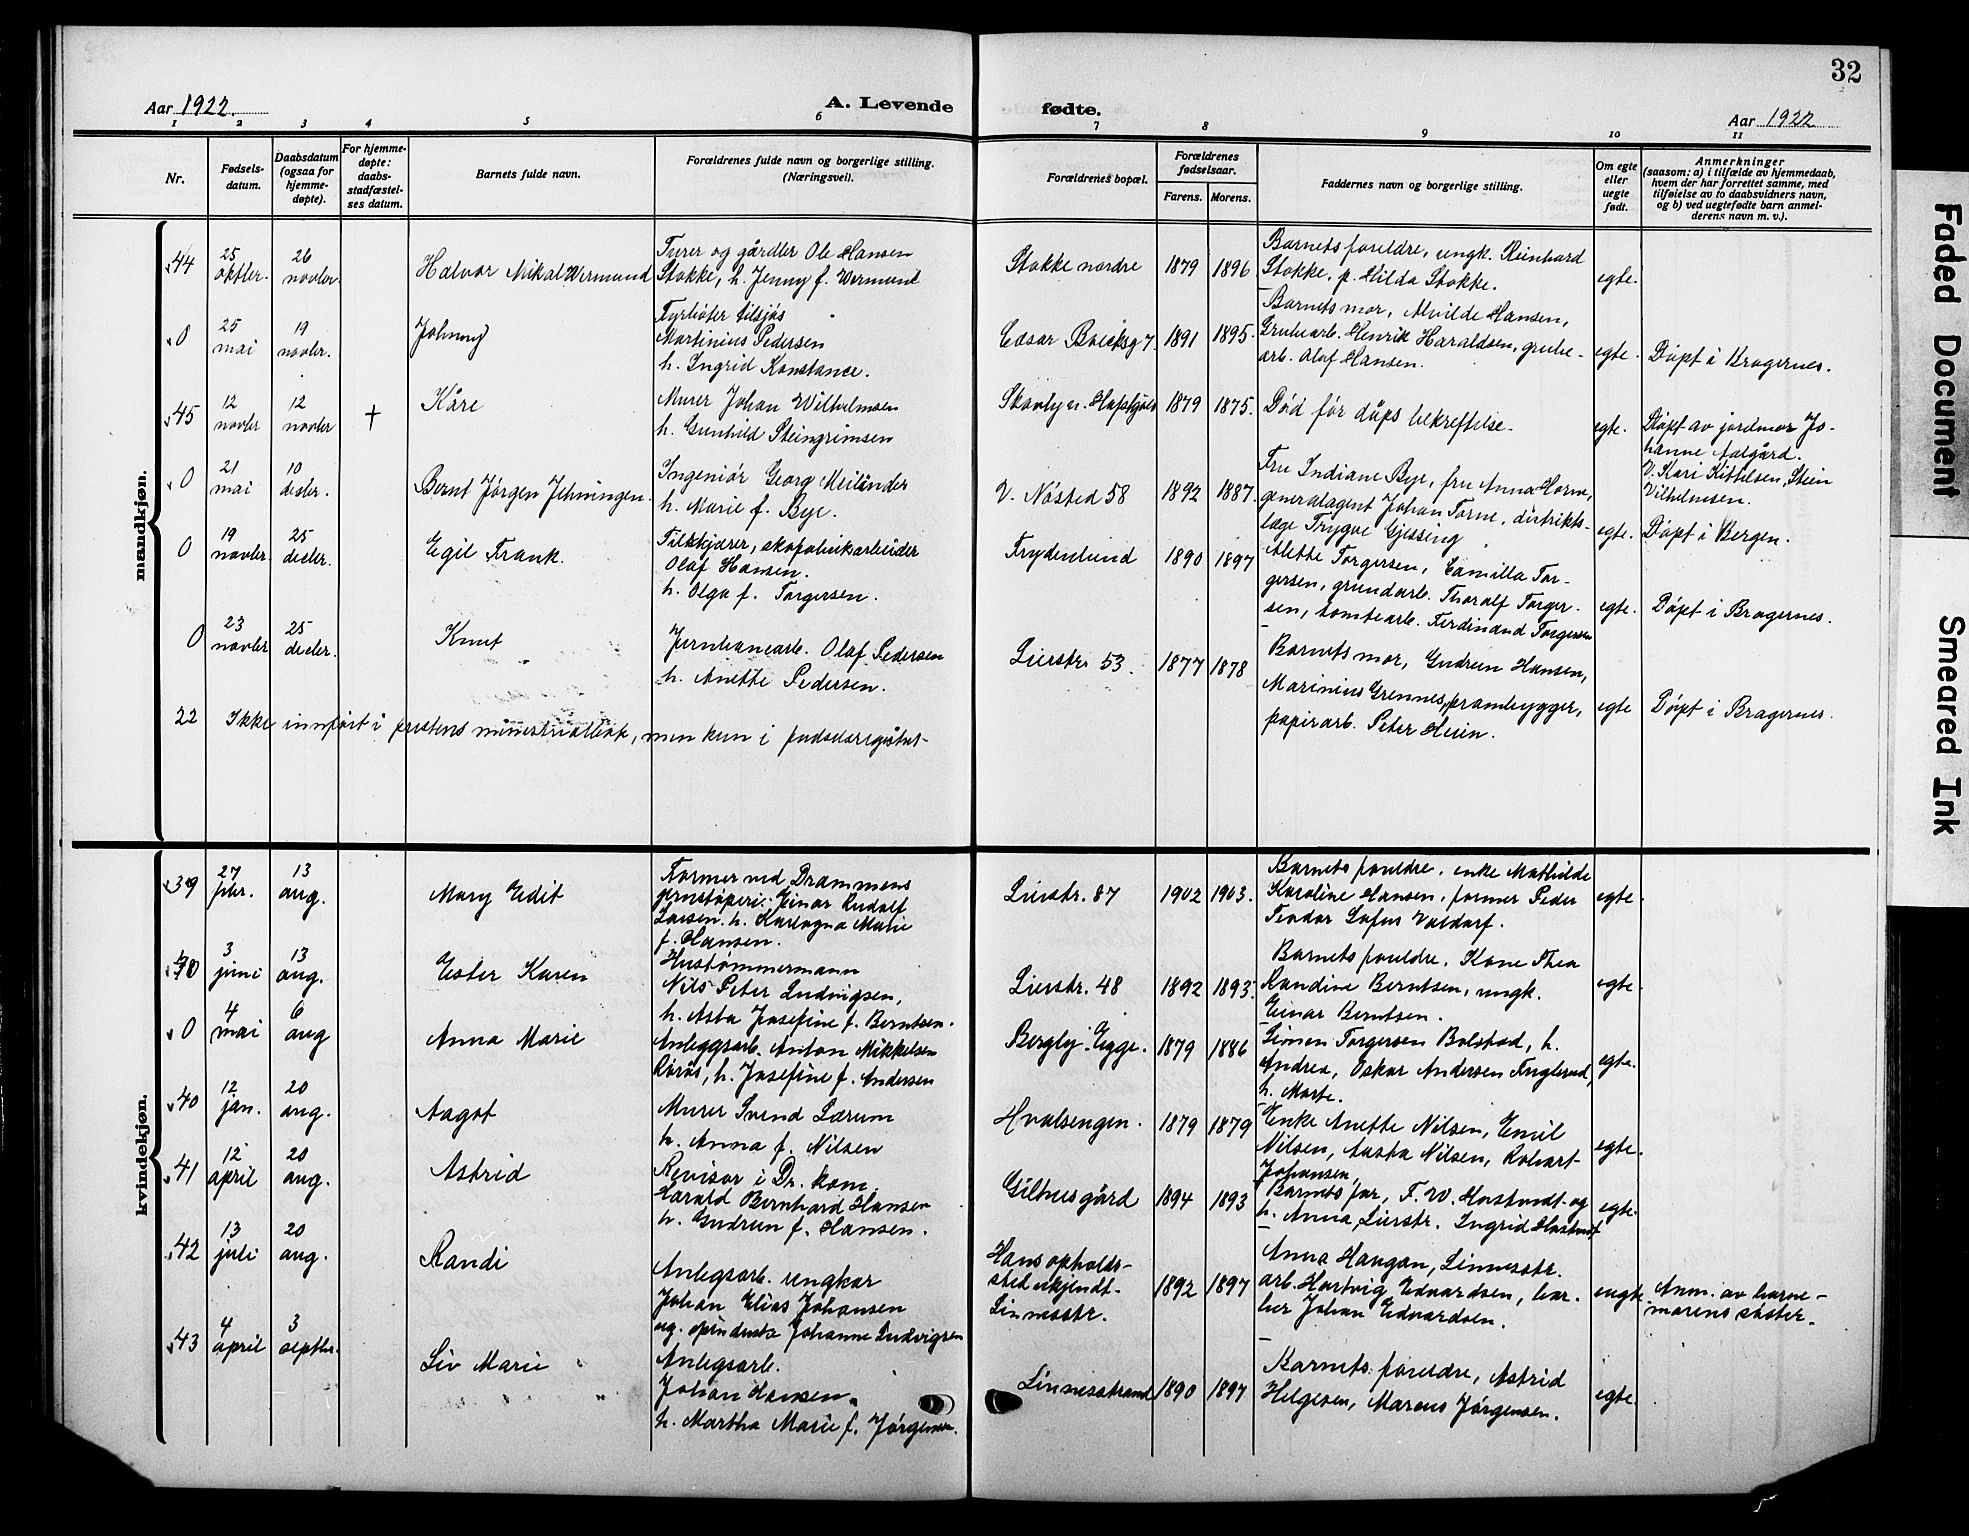 32
Aar 1922.
A. Levende
fødte.
Aar 1922
1 2 3 4 5 6 7 8 9 10 11
Nr.
Fødsels-
datum.
Daabsdatum
(ogsaa for
hjemme-
døpte).
For hjemme-
døpte:
daabs-
stadfæstel-
ses datum.
Barnets fulde navn.
Forældrenes fulde navn og borgerlige stilling.
(Næringsvei).
Forældrenes bopæl.
Forældrenes
fødselsaar.
Farens. Morens.
Faddernes navn og borgerlige stilling.
Om egte
eller
uegte
født.
Anmerkninger
(saasom: a) i tilfælde av hjemmedaab,
hvem der har forrettet samme, med
tilføielse av to daabsvidners navn,
og b) ved uegtefødte barn anmel-
derens navn m. v.).
mandkjøn.
44
25
oktber.
26
novber.
Halvor Mikal Wermund
Furer og gårdbr Ole Hansen
Stokke, h. Jenny f. Wermund
Stokke nordre
1879
1896
Barnets foreldre, ungk. Reinhard
Stokke, p. Hilda Stokke.
egte.
0
25
mai
19
novber.
Johnny
Fyrbøter tilsjøs
Martinius Pedersen
h. Ingrid Konstance.
1891
1895.
Barnets mor, Alvilde Hansen,
Grubearb. Henrik Haraldsen, grube-
arb. Olaf Hansen.
egte.
Døpt i Bragernes.
45
12
novber
12
novber
†
Kåre
Murer Johan Wilhelmsen
h. Gunhild Steingrimsen
1879
1875.
Død før dåps bekreftelse.
egte.
Døpt av jordmor Jo-
hanne Aalgård.
V. Kari Kittelsen, Stein
Vilhelmsen.
0
21
mai
10
desber.
Bernt Jørgen Jehningen.
Ingeniør Georg Meilænder
h. Marie f. Bye.
V. Nøsted 58
1892
1887.
Fru Indiane Bye, fru Anna Horne,
generalagent Johan Torne, distrikts-
læge Trygve Gjessing
egte.
Døpt i Bergen.
0
19
novber.
25
desber.
Egil Frank.
Tilskjærer, skofabrikarbeider
Olaf Hansen.
h. Olga f. Torgersen.
Frydenlund
1890
1897
Alette Torgersen, Camilla Tor-
gersen, grundarb. Thoralf Torger-
sen, tomtearb. Ferdinand Torgersen
egte.
Døpt i Bragernes.
0
23
novber
25
desber.
Knut
Jernbanearb. Olaf Pedersen
h. Anette Pedersen.
Lierstr 53.
1877
1878
Barnets mor, Gudrun Hansen,
Marinius Grennes, prambygger,
papirarb. Peter Heien.
egte
Døpt i Bragernes.
22 Ikke innført i prestens ministrialbok, men kun i fødselsregistret
kvindekjøn.
39
27
febr.
13
aug.
Mary Edit
Former ved Drammens
Jernstøperi Einar Rudolf
Larsen. h. Karlagna Marie
f. Hansen.
Lierstr. 87
1902
1903.
Barnets foreldre. enke Mathilde
Karoline Hansen, former Peder
Teodor Sofus Valdorf.
egte.
0
3
juni
13
aug.
Ester Karen
Hustømmermann
Nils Peter Ludvigsen,
h. Asta Josefine f. Berntsen.
Lierstr. 48
1892
1893.
Barnets foreldre. Kone Thea
Randine Berntsen, ungk.
Einar Berntsen.
egte.
0
4
mai
6
aug
Anna Marie
Anleggsarb. Anton Mikkelsen
Rørås, h. Josefine f. Andersen
Bergly. Egge.
1879
1886
Simen Torgersen Bolstad, h.
Andrea, Oskar Andersen Fuglerud,
h. Marte.
egte.
40
12
jan.
20
aug.
Aagot
Murer Svend Lærum
h. Anna f. Nilsen
Hvalsengen.
1879
1879
Enke Anette Nilsen, Emil
Nilsen, Aasta Nilsen, Robart
Johansen,
egte.
41
12
april
20
aug.
Astrid
Revisor i Dr. kom.
Harald Bernhard Hansen
h. Gudrun f. Hansen.
Giltnesgård
1894
1893
Barnets far, F. W. Harstvedt og
h. Anna, Lierstr. Ingrid Harstvedt
egte.
42
13
juli
20
aug.
Randi
Anlegsarb. ungkar
Johan Elias Johansen
ug. spinderske Johanne Ludvigsen
Hans opholds-
sted ukjendt.
Linnesstr.
1892
1897
Anna Haugan, Linnesstr.
arb. Hartvig Edvardsen, bar-
ber Johan Edvardsen.
uegte
Anm. av barne-
morens søster.
43
4
april
3
septber.
Liv Marie
Anlegsarb.
Johan Hansen.
h. Martha Marie f. Jørgensen.
Linnesstrand
1890
1897
Barnets foreldre, Astrid
Helgesen, Marcus Jørgensen.
egte.
Faded Document
Smeared Ink